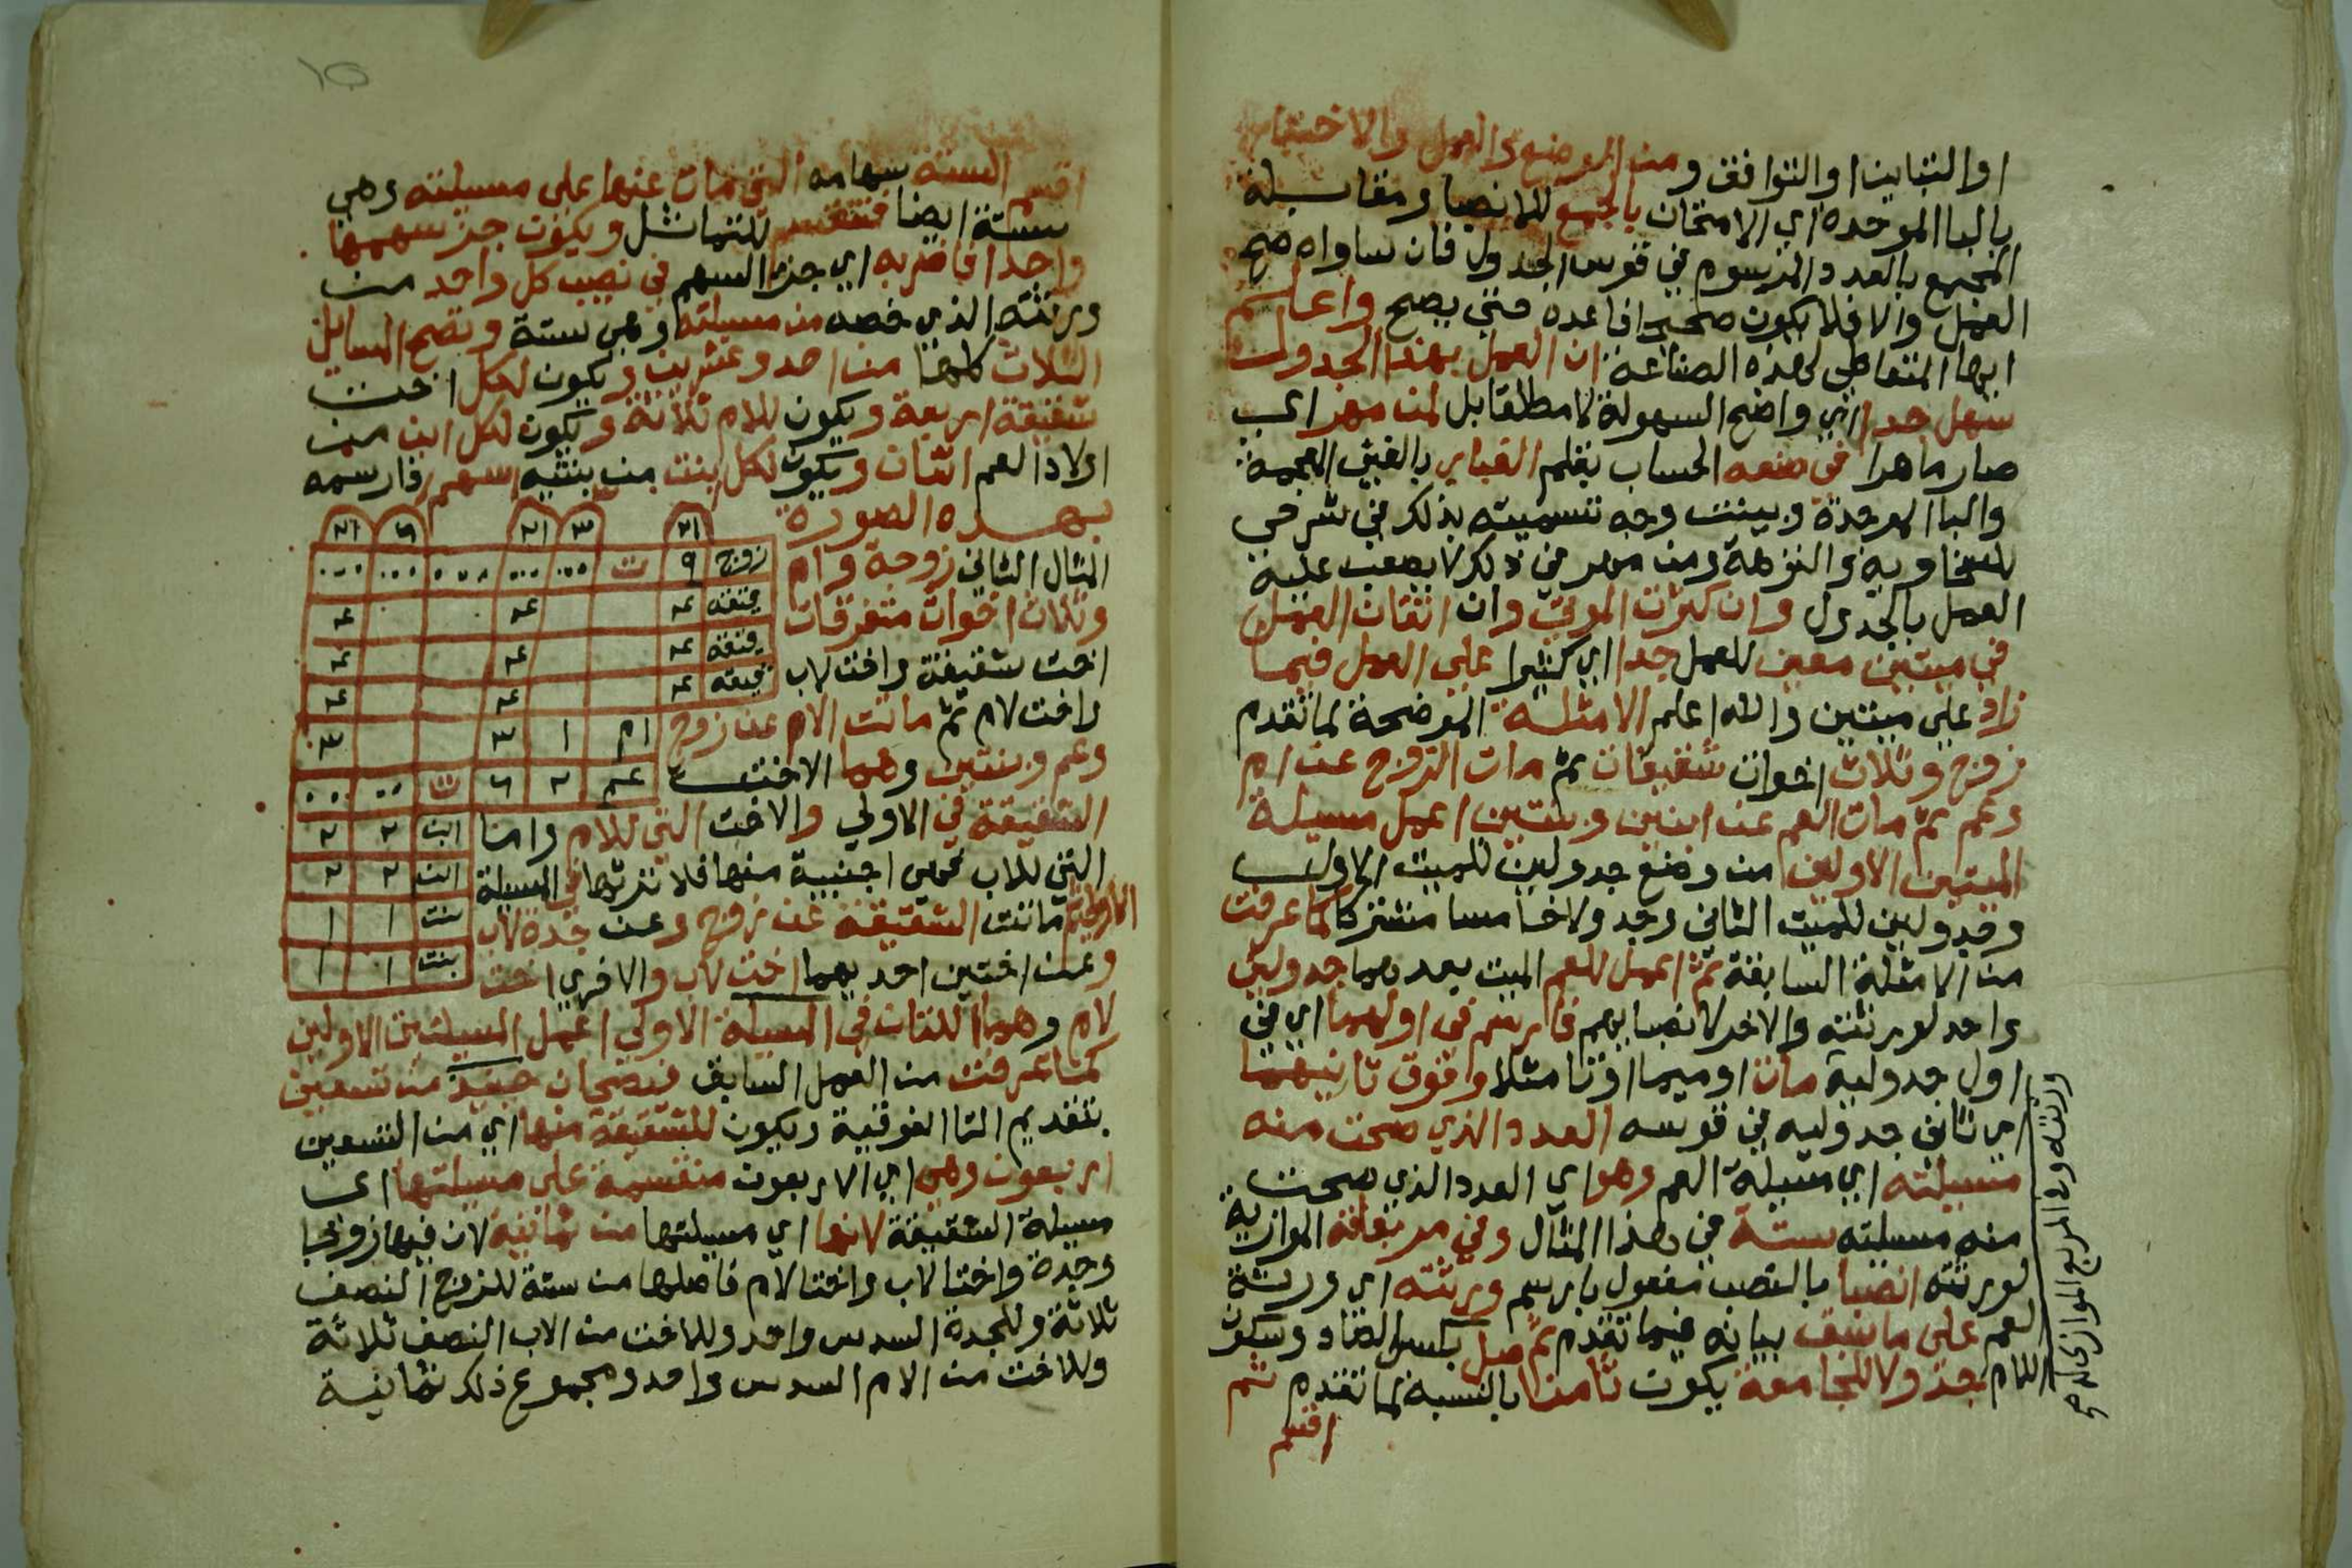 او التباين او التوافق ومن الموضع والعمل والاختبار
بالبا الموحدة اي الامتحان بالجمع للانصبا ومقابلة
المجموع بالعدد المرسوم في قوس الجدول فان ساواه صح
العمل والا فلا يكون صحيحا فاعده حتي يصح واعلم
ايها المتعاطي لهذه الصناعة ان العمل بهذا الجدول
سهل جدا اي واضح السهولة لا مطلقا بل لمن مهر اي
صار ماهرا في صنعه الحساب بقلم الغباري بالغين المعجمة
والبا الموحدة وبينت وجه تسميته بذلك في شرحي
للسخاوية والنزهة ومن مهر في ذلك لا يصعب عليه
العمل بالجدول وان كثرت الموتي وان اتقان العمل
في ميتين معين للعمل جدا اي كثيرا علي العمل فيما
زاد علي ميتين والله اعلم الامثلة الموضحة لما تقدم
زوج وثلاث اخوات شقيقات ثم مات الزوج عن ام
وعم ثم مات العم عن ابنين وبنتين اعمل مسيلة
الميتين الاولين من وضع جدولين للميت الاول
وجدولين للميت الثاني وجدولا خامسا مشتركا كما عرفت
من الامثلة السابقة ثم اعمل للعم الميت بعدهما جدولين
واحد لورثته والاخر لانصبايهم فارسم في اولهما اي في
اول جدوليه مات او ميما او تا مثلا وفوق ثانيهما
اي ثاني جدوليه في قوسه العدد الذي صحت منه
مسيلته اي مسيلة العم وهو اي العدد الذي صحت
منه مسيلته ستة في هذا المثال وفي مربعاته الموازية
لورثته انصبا بالنصب مفعول بارسم ورثته اي ورثة
العم علي ما سبق بيانه فيما تقدم ثم صل بكسر الصاد وسكون
اللام جدولا للجامعة يكون ثامنا بالنسبة لما تقدم ثم
اقسم
اقسم الستة سهامه التي مات عنها علي مسيلته وهي
ستة ايضا فتنقسم للتماثل ويكون جز سهمها
واحدا فاضربه اي جزء السهم في نصيب كل واحد من
ورثته الذي خصه من مسيلته وهي ستة وتصح المسايل
الثلاث كلها من احد وعشرين ويكون لكل اخت
شقيقة اربعة ويكون للام ثلاثة ويكون لكل ابن من
اولاد العم اثنان ويكون لكل بنت من بنتيه سهم فارسمه
بهذه الصورة
٢١ ٣ ٢١ ٦ ٢١
زوج ٩ ت
شقيقه ٤ ٤ ٤
شقيقه ٤ ٤ ٤
شقيقه ٤ ٤ ٤
ام ١ ٣ ٣
عم ٢ ٦ ت
ابن ٢ ٢
ابن ٢ ٢
بنت ١ ١
بنت ١ ١
المثال الثاني زوجة وام
وثلاث اخوات متفرقات
اخت شقيقة واخت لاب
واخت لام ثم ماتت الام عن زوج
وعم وبنتين وهما الاخت
الشقيقة في الاولي والاخت التي للام واما
التي للاب فهي اجنبية منها فلا ترثها في المسيلة
الاولي ثم ماتت الشقيقة عن زوج وعن جدة لاب
وعن اختين احديهما اخت لاب والاخري اخت
لام وهما اللتان في المسيلة الاولي اعمل المسيلتين الاولين
كما عرفت من العمل السابق فيصحان حينيذ من تسعين
بتقديم التا الفوقية ويكون للشقيقة منها اي من التسعين
اربعون وهي اي الاربعون منقسمة علي مسيلتها اي
مسيلة الشقيقة لانها اي مسيلتها من ثمانية لان فيها زوجا
وجدة واختا لاب واختا لام فاصلها من ستة للزوج النصف
ثلاثة وللجدة السدس واحد وللاخت من الاب النصف ثلاثة
وللاخت من الام السدس واحد ومجموع ذلك ثمانية